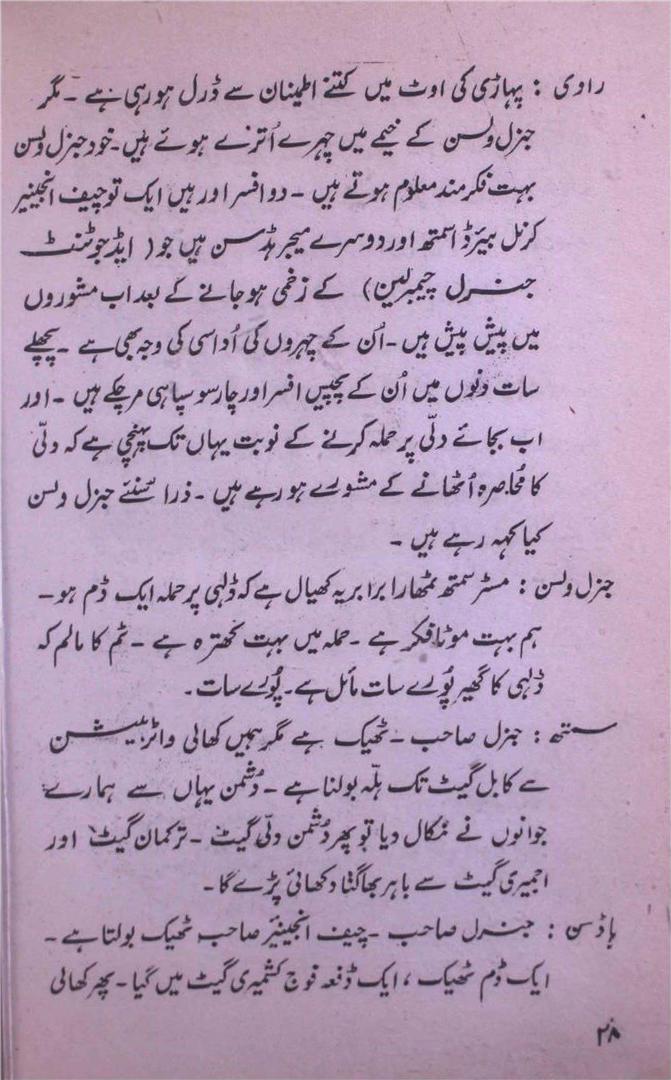 راوی : پہاڑی کی اوٹ میں کتنے اطمینان سے ڈرل ہو رہی ہے ۔ مگر
جنرل ولسن کے خیمے میں چہرے اُترے ہوئے ہیں۔ خود جنرل ولسن
بہت فکرمند معلوم ہوتے ہیں ۔ دو افسر اور ہیں ایک تو چیف انجینیر
کرنل بیئرڈ اسمتھ اور دوسرے میجر ہڈسن ہیں جو ( ایڈجوٹنٹ
جنرل چیمبرلین) کے زخمی ہو جانے کے بعد اب مشوروں
میں پیش پیش ہیں ۔ اُن کے چہروں کی اُداسی کی وجہ بھی ہے ۔ پچھلے
سات دنوں میں اُن کے پچیس افسر اور چار سو سپاہی مر چکے ہیں ۔ اور
اب بجائے دلّی پر حملہ کرنے کے نوبت یہاں تک پہنچی ہے کہ دلّی
کا محاصرہ اُٹھانے کے مشورے ہو رہے ہیں ۔ ذرا سُنئے جنرل ولسن
کیا کہہ رہے ہیں ۔
جنرل ولسن : مسٹر سمتھ ٹمھارا برابر یہ کھیال ہے کہ ڈلہی پر حملہ ایک ڈم ہو ۔
ہم بہت موٹا فکر ہے ۔ حملہ میں بہت کھترہ ہے ۔ ٹم کا مالم کہ
ڈلہی کا گھیر پُورے سات مائل ہے۔ پُورے سات ۔
سمتھ : جنرل صاحب ۔ ٹھیک ہے مگر ہمیں کھالی واٹر بیسٹیشن
سے کابل گیٹ تک ہلّہ بولنا ہے ۔ دُشمن یہاں سے ہمارے
جوانوں نے نکال دیا تو پھر دُشمن دلّی گیٹ ۔ ترکمان گیٹ اور
اجمیری گیٹ سے باہر بھاگتا دکھائی پڑے گا ۔
ہاڈسن : جنرل صاحب ۔ چیف انجینئر صاحب ٹھیک بولتا ہے ۔
ایک ڈم ٹھیک ، ایک ڈفعہ فوج کشمیری گیٹ میں گیا ۔ پھر کھالی
۲۸